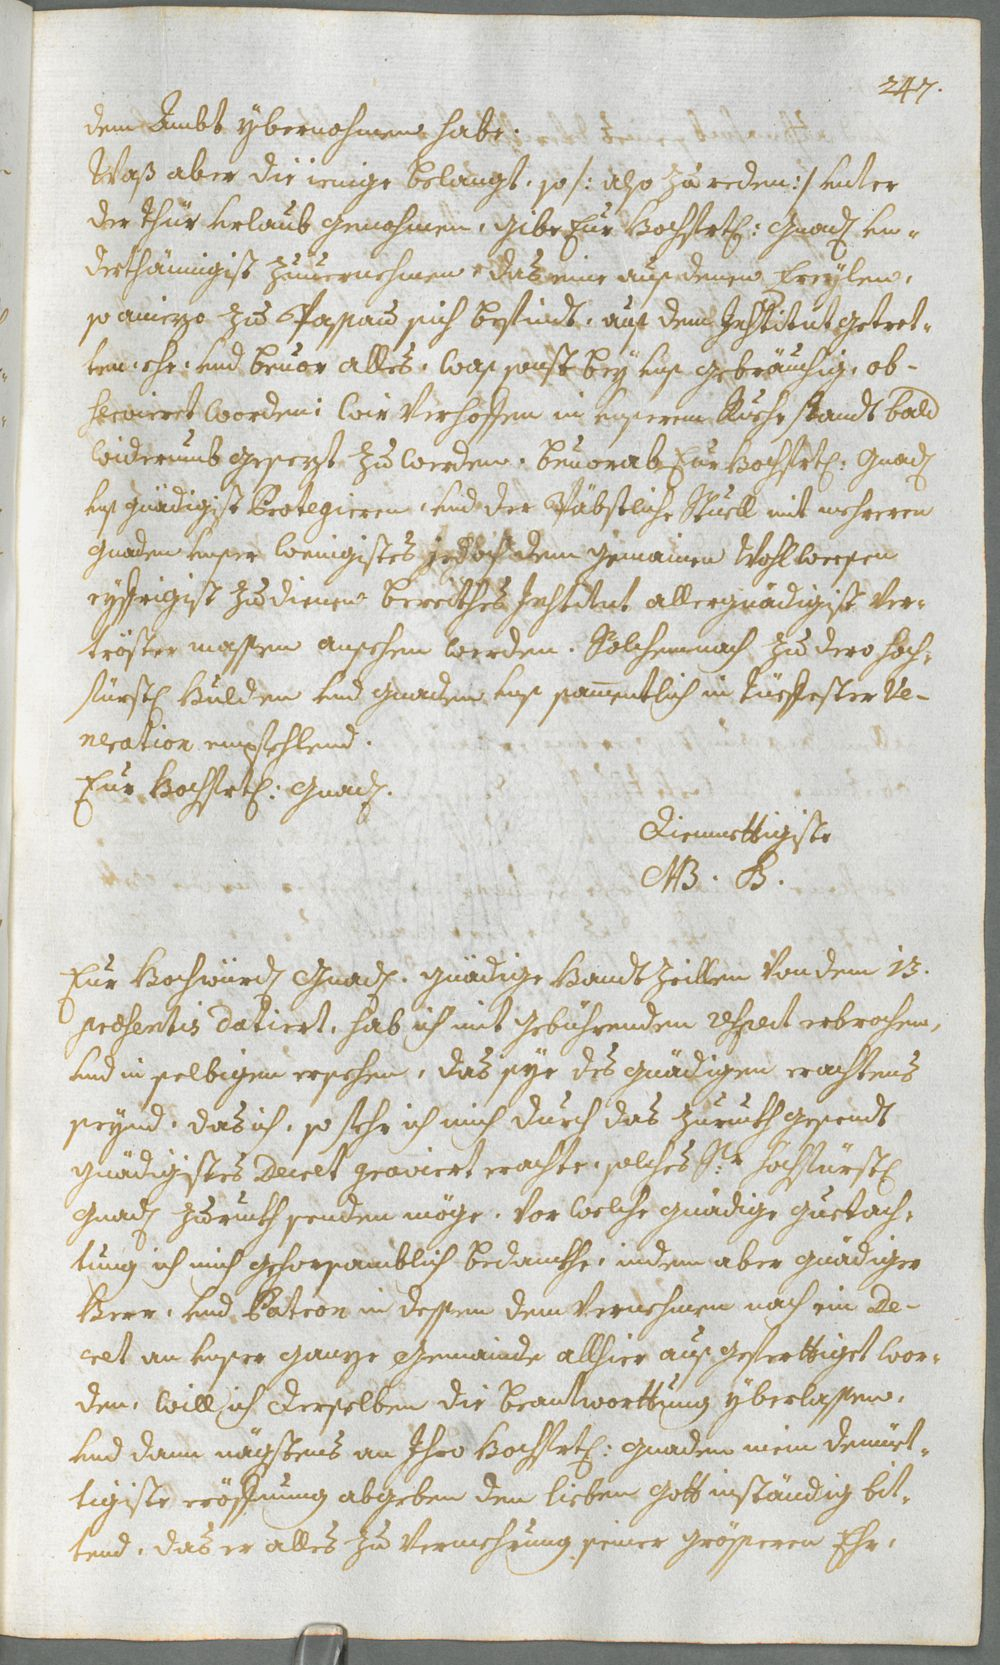 247.
dem Ambt ybernohmen habe.
Waß aber die ienige belangt, so /: also zu reden:/ unter
der thür urlaub genohmen, gibe Eur Hochfrtl: Gnad un-
derthänigist zuuernehmen, das eine auß denen Freylen,
so aniezo zu Passau sich befindt, auß dem Institut getret-
ten, ehe, und beuor alles, was sonst bey uns gebräuchig, ob-
servieret worden: wir verhoffen in unserem Ruhe standt bald
widerumb gesezt zu werden, beuorab Eur Hochfrtl: Gnad
uns gnädigist Protegieren, und der Päbstliche Stuell mit mehreren
gnaden unser wenigistes jedoch dem gemainen Wohlweesen
eyfrigist zu dienen bereithes Institut allergnädigist ver-
tröster massen ansehen werden. Solchemnach zu dero hoch-
fürstl Hulden und gnaden uns sammentlich in tüeffester Ve-
neration empfehlend.
Eur Hochfrtl: Gnad.
Diemüettigiste
MB. B.
Eur Hochwürd Gnad. gnädige Handt zeillen von dem 13.
præsentis datiert, hab ich mit gebührendem respect erbrochen,
und in selbigen ersehen, das sye des gnädigen erachtens
seynd, das ich, so sehr ich mich durch das zurukh gesendt
gnädigistes Decret graviert erachte, solches Sr. hochfürstl
Gnad zurukh senden möge. Vor welche gnädige guetach-
tung ich mich gehorsamblich bedankhe, indem aber gnädiger
Herr, und Patron in dessen dem vernehmen nach ein De-
cret an unser ganze Gemainde allhier auß gefertiget wor-
den, will ich derselben die beantworttung yberlassen,
und dann nägstens an Ihro Hochfrtl: gnaden mein demüet-
tigiste eröffnung abgeben den lieben Gott inständig bit-
tend, das er alles zu vermehrung seiner grösseren Ehr,